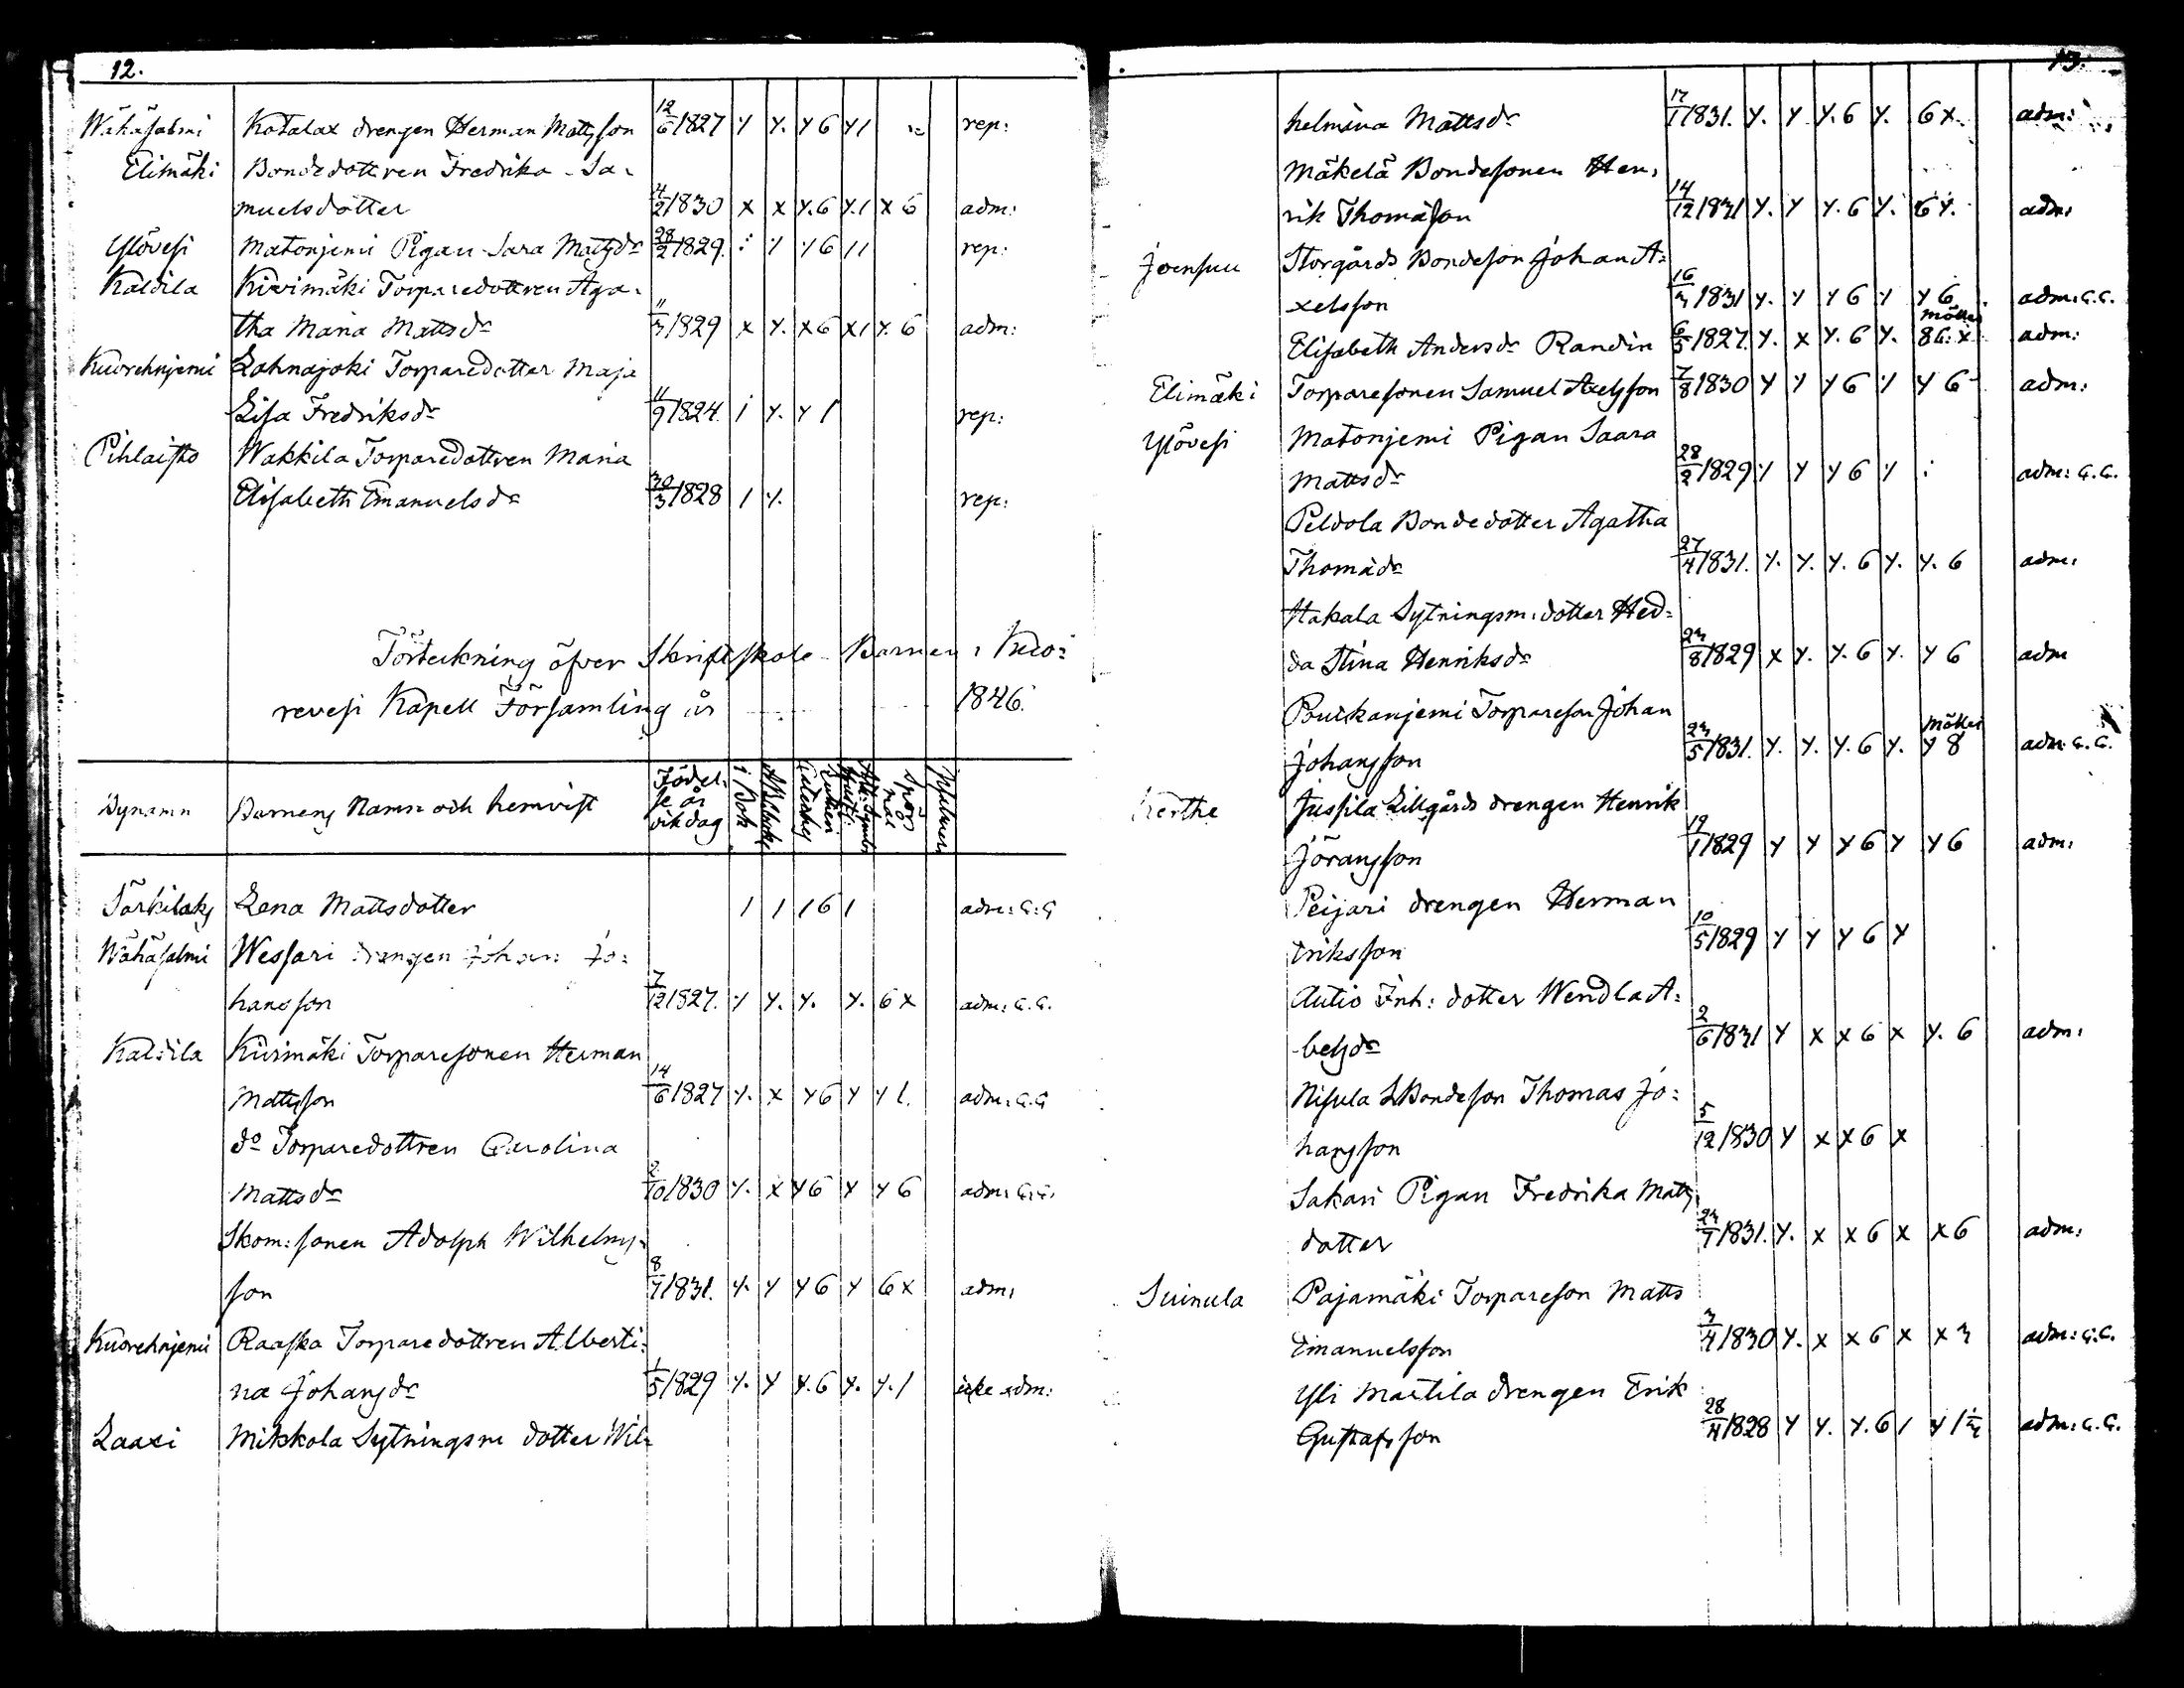 12.
Wähäsalmi Katalax drengen Herman Mattsson 12/6 1827 y y. y 6 y 1 rep:
Elimäki Bondedottren Fredrika Sa-
muelsdotter 4/2 1830 x x y. 6 y. 1 x 6 adm:
Ylövesi Matonjemi Pigan Sara Mattsdr 28/2 1829. i y y 6 1 1 rep:
Kaldila Kivimäki Torparedottren Aga-
tha Maria Mattsdr 11/3 1829 x y. x 6 x 1 y. 6 adm:
Kuorehnjemi Lahnajoki Torparedotter Maja
Lisa Fredriksdr 11/9 1824. i y. y 1 rep:
Pihlaisto Wakkila Torparedottren Maria
Elisabeth Emanuelsdr 30/3 1828 1 y. rep:
Förteckning öfver Skriftskole Barnen i Kuo-
revesi Kapell Församling år 1846.
Bynamn Barnens Namn och hemvist Födel-
se år
och dag i Bok Spörs
mål
Lena Mattsdotter 1 1 1 6 1 adm: C:C
Wähäsalmi Wessari drengen Johan Jo-
hansson 7/12 1827. y y. y. y. 6 x adm: C.C.
Kaldila Kivimäki Torparesonen Herman
Mattsson 14/6 1827 y. x y 6 y y 1. adm: C.C
do Torparedottren Carolina
Mattsdr 2/10 1830 y. x y 6 y y 6 adm: C.C.
Skom: sonen Adolph Wilhelms-
son 8/7 1831. y. y y 6 y 6 x adm:
Kuorehnjemi Raaska Torparedottren Alberti-
na Johansdr 1/5 1829 y. y y. 6 y. y. 1 icke adm:
Laaxi Mikkola Sytningsm dotter Wil-
13.
helmina Mattsdr 17/1 1831. y. y y. 6 y. 6 x. adm:
Mäkelä Bondesonen Hen-
rik Thomasson 14/12 1831 y. y y. 6 y. 6 y. adm:
Joensuu Storgårds Bondeson Johan A-
xelsson 16/3 1831 y. y y 6 y y 6 adm: C.C.
Elisabeth Andersdr Randin 6/5 1827. y. x y. 6 y. 8 6: x adm:
Elimäki Torparesonen Samuel Axelsson 7/8 1830 y y y 6 y y 6 adm:
Ylövesi Matonjemi Pigan Saara
Mattsdr 28/2 1829 y y y 6 y i adm: C.C.
Peldola Bondedotter Agatha
Thomädr 27/4 1831. y. y. y. 6 y. y. 6 adm:
Hakala Sytningsm: dotter Hed-
da Stina Henriksdr 23/8 1829 x y. y. 6 y. y 6 adm
Torpareson Johan
Johansson 23/5 1831. y. y. y. 6 y. y 8 adm: C.C.
Kerthe Jussila Lillgårds drengen Henrik
Göransson 19/1 1829 y y y 6 y y 6 adm:
Peijari drengen Herman
Eriksson 10/5 1829 y y y 6 y
Autio Inh: dotter Wendla A-
belsdr 2/6 1831 y x x 6 x y. 6 adm:
Nisula L Bondeson Thomas Jo-
hansson 5/12 1830 y x x 6 x
Sakari Pigan Fredrika Matts
dotter 23/7 1831. y. x x 6 x x 6 adm:
Suinula Pajamäki Torpareson Matts
Emanuelsson 3/4 1830 y. x x 6 x x 3 adm: C.C.
Yli Mattila drengen Erik
Gustafsson 28/4 1828 y y. y. 6 1 adm: C.C.